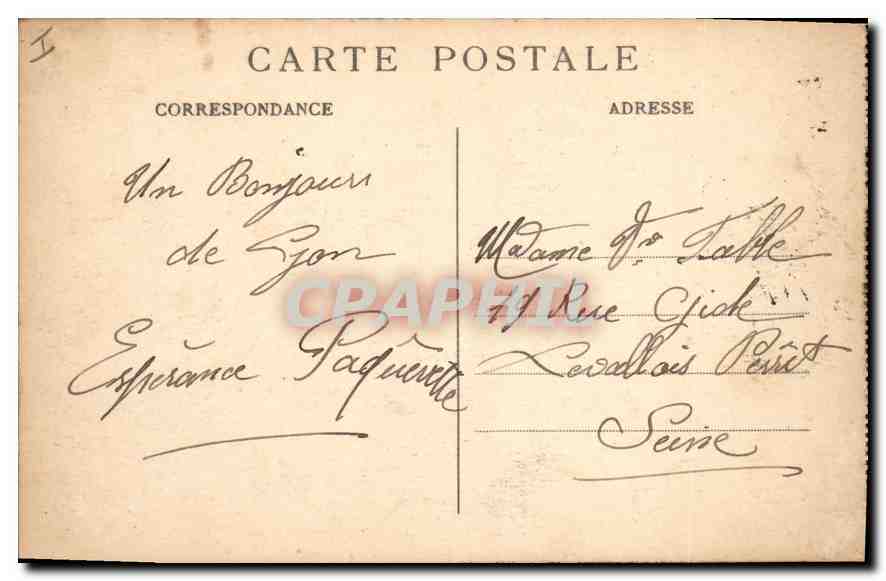 I
CARTE POSTALE
CORRESPONDANCE
Un Bonjour
de Lyon
Espérance Paquerette
ADRESSE
Madame Vve Table
19 Rue Gide
Levallois Perrêt
Seine
CPAPHIL